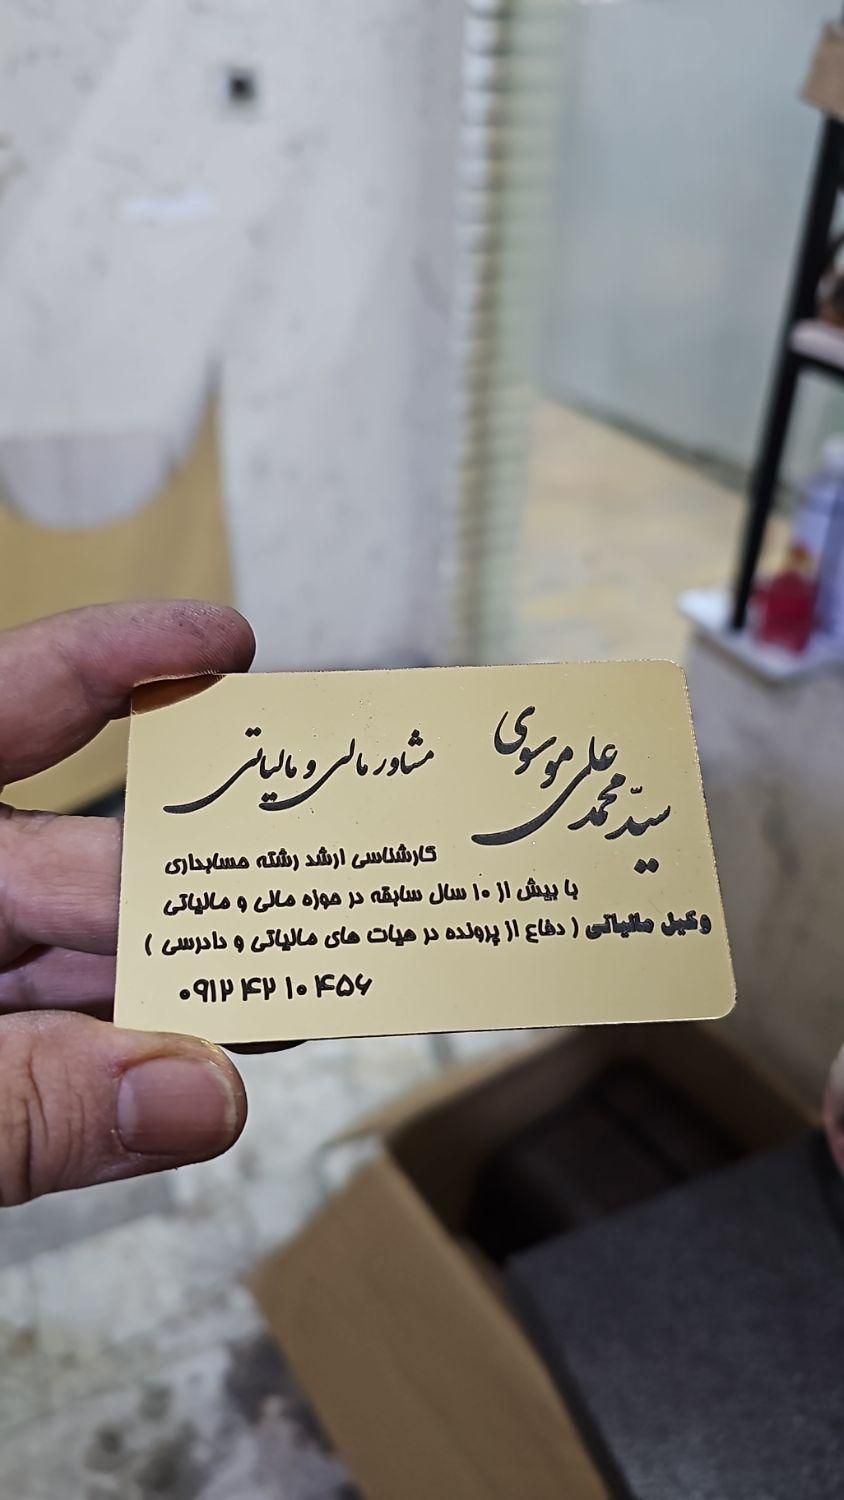 سیّد محمد علی موسوی
مشاور مالی و مالیاتی
کارشناسی ارشد رشته حسابداری
با بیش از ۱۰ سال سابقه در حوزه مالی و مالیاتی
وکیل مالیاتی ( دفاع از پرونده در هیات های مالیاتی و دادرسی )
۰۹۱۲ ۴۲ ۱۰ ۴۵۶